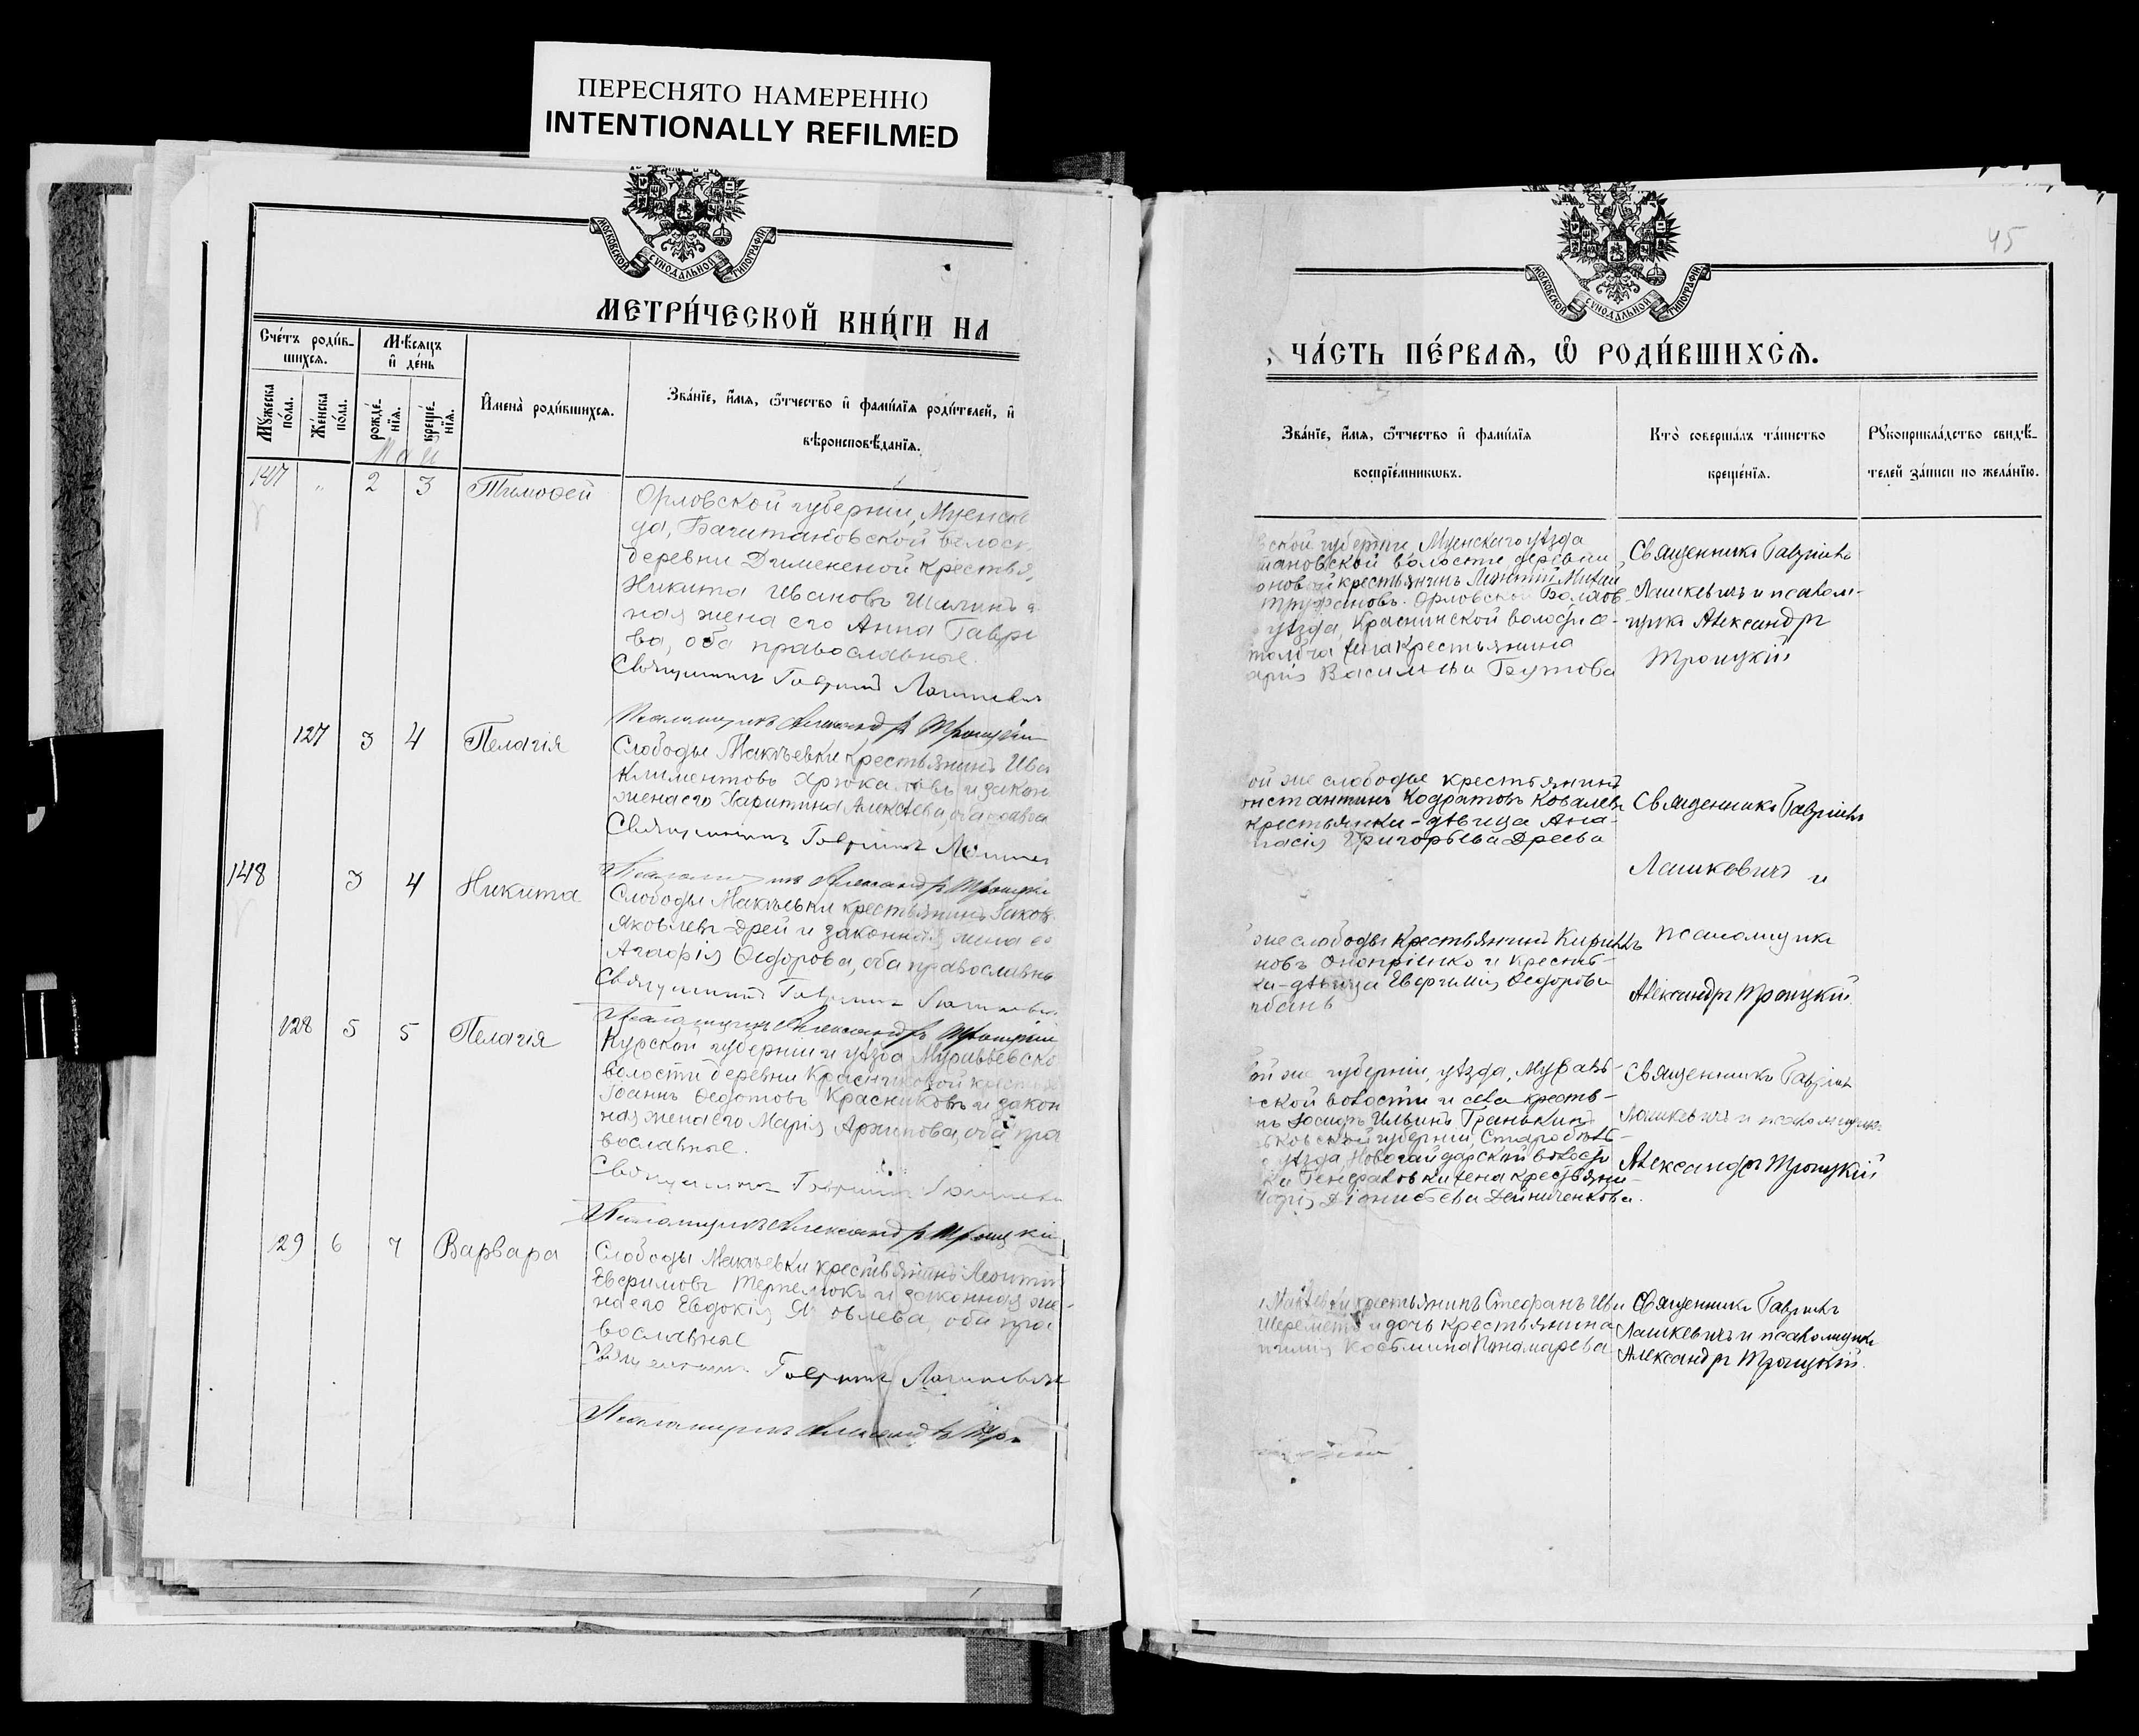 ПЕРЕСНЯТО НАМЕРЕННО
INTENTIONALLY REFILMED
МОСКОВСКОЙ СѴНОДАЛЬНОЙ ТИПОГРАФІИ
МЕТРИ́ЧЕСКОЙ КНИ́ГИ НА
Сче́тъ роди́в-
шихся.
Мѣ́сяцъ
и҆ де́нь
Мꙋжеска
по́ла.
Же́нска
по́ла.
рожде́-
нія.
креще́-
нія.
И҆мена̀ роди́вшихся.
Зва́ніе, и҆́мя, ѻ҆́тчество и҆ фами́лія роди́телей, и҆
вѣроисповѣ́данія.
Май
147 " 2 3 Тимофей
Орловской губерніи, Мценска
да, волос
деревни крестья
Никита Ивановъ
ная жена его Анна Гаври
ва, оба православные.
Священникъ Гавріилъ Лашкевич
Псаломщикъ Александръ Троицкій
127 3 4 Пелагія
Слободы Макѣевки крестьянинъ Ива
Климентовъ и закон
жена его Харитина Алексѣева, оба правос
Священникъ Гавріилъ
Псаломщикъ Александръ Троицкі
148 3 4 Никита
Слободы Макѣевки крестьянинъ Яков
Яковлевъ Дрей и законная жена е
Агафія Ѳедорова, оба православны
Священникъ Гавріилъ Лашкеви
Псаломщикъ Александръ Троицкій
128 5 5 Пелагія
Курской губерніи и уѣзда Муравьевско
волости деревни Красниковой крестья
Іоаннъ Ѳедотовъ Красниковъ и закон
ная жена его Марія Архипова, оба пра
вославные.
Священникъ Гавріилъ Лашкеви
Псаломщикъ Александръ Троицкі
29 6 7 Варвара
Слободы Макѣевки крестьянинъ Леонтій
Евфимовъ и законная же-
на его Евдокія, оба пра
вославные
Священникъ Гавріилъ Лашкевич
Псаломщикъ Александръ Тро
45
МОСКОВСКОЙ СѴНОДАЛЬНОЙ ТИПОГРАФІИ
, ЧА́СТЬ ПЕ́РВАЯ, Ѡ҆ РОДИ́ВШИХСЯ.
Зва́ніе, и҆́мя, ѻ҆́тчество и҆ фами́лія
воспріе́мникωвъ.
Кто̀ соверша́лъ та́инство
креще́нія.
Рꙋкоприкла́дство свидѣ́-
телей за́писи по жела́нію.
ской губерніи, Мценскаго уѣзда
мановской волости, деревни
оновой крестьянинъ Леонтій
Труфановъ. Орловской Болхов-
уѣзда, Краснинской волости с-
жена крестьянина
арія Васильева Бутова
Священникъ Гавріилъ
Лашкевичъ и псалом-
щикъ Александръ
Троицкій
ой же слободы крестьянинъ
онстантинъ Кодратовъ Ковалевъ
крестьянки-дѣвица Ана-
тасія Григорьева Дреева
Священникъ Гавріилъ
Лашкевичъ и
псаломщикъ
Александръ Троицкій.
же слободы крестьянинъ Кириллъ
новъ Оноприенко и крестья-
ка-дѣвица Евфимія Ѳедорова
рбань
ой же губерніи, уѣзда, Муравь-
ской волости и села кресть-
нъ Іосифъ Ильинъ Гранькинъ
ьковской губерніи, Старобѣль-
о уѣзда Новоайдарской волости
жена крестьяни-
Марія Діонисьева Дейниченкова.
Священникъ Гавріилъ
Лашкевичъ и псаломщикъ
Александръ Троицкій
Макѣевки крестьянинъ Стефанъ Ива
Шереметъ и дочь крестьянина
Косьмина Пономарева
Священникъ Гавріилъ
Лашкевичъ и псаломщикъ
Александръ Троицкій.